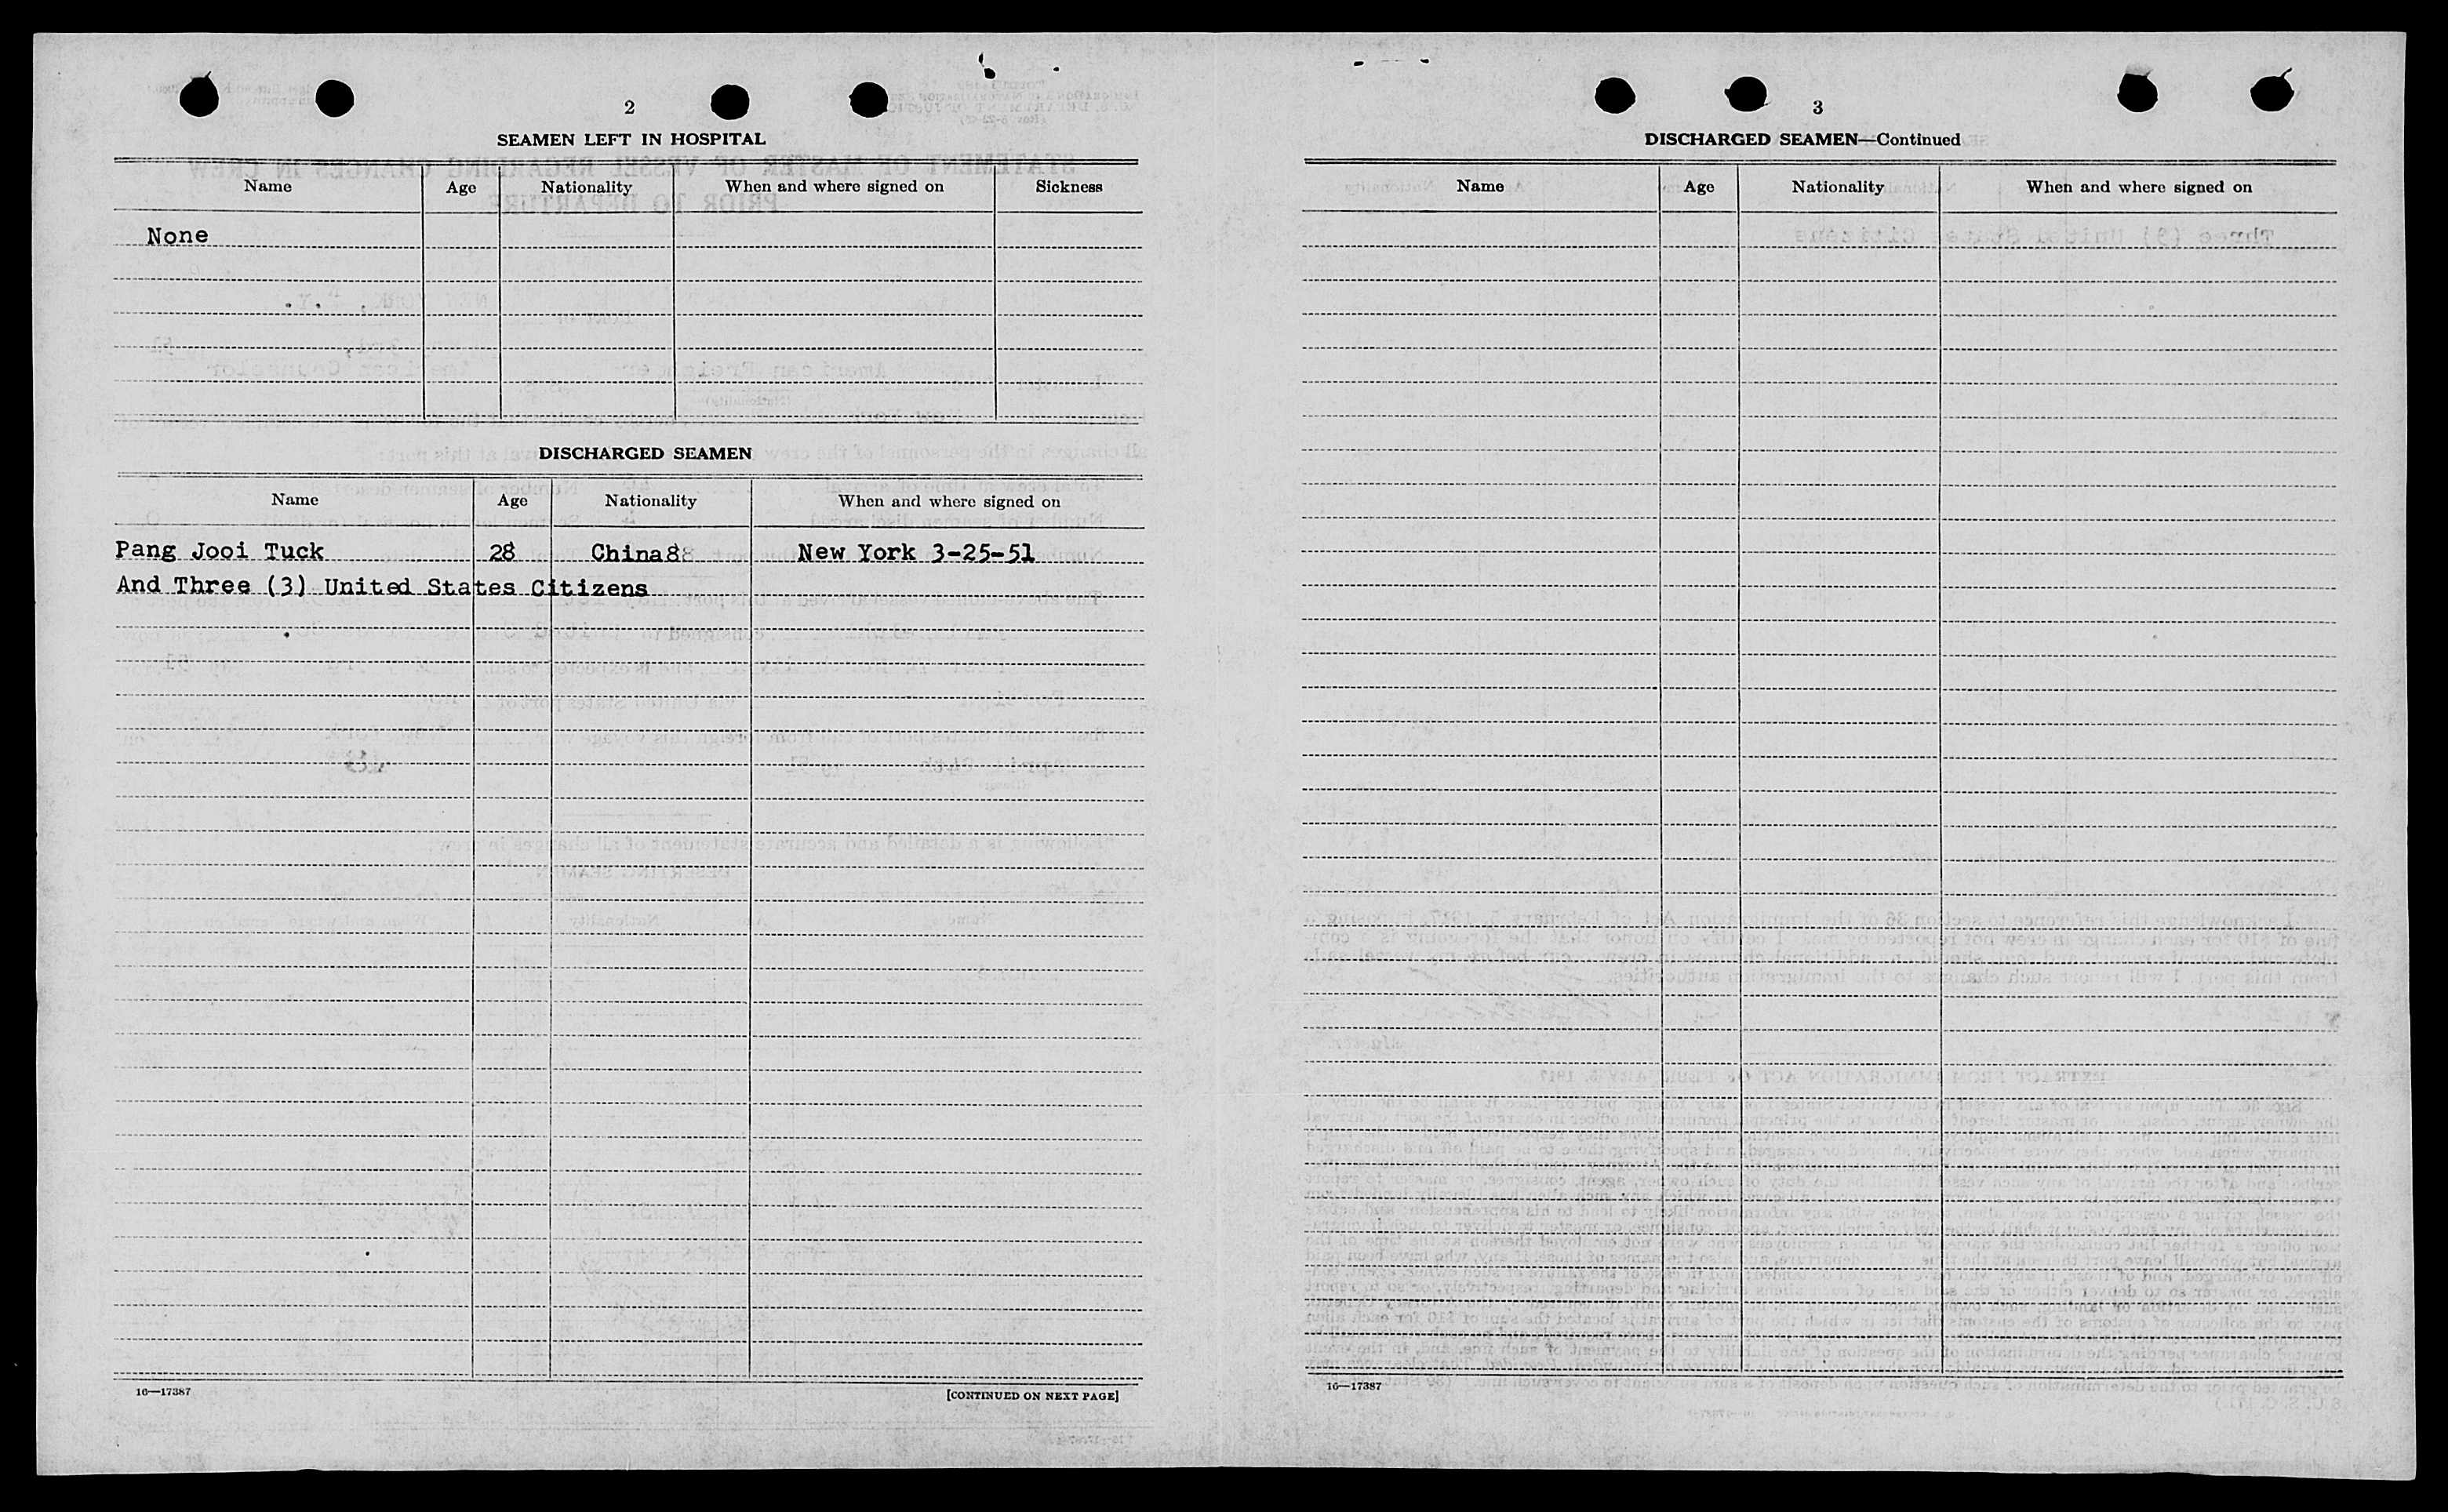 2
SEAMEN LEFT IN HOSPITAL
Name Age Nationality When and where signed on Sickness
None
DISCHARGED SEAMEN
Name Age Nationality When and where signed on
Pang Jooi Tuck 28 China8 New York 3-25-51
And Three (3) United States Citizens
16—17387 [CONTINUED ON NEXT PAGE]
3
DISCHARGED SEAMEN—Continued
Name Age Nationality When and where signed on
16—17387